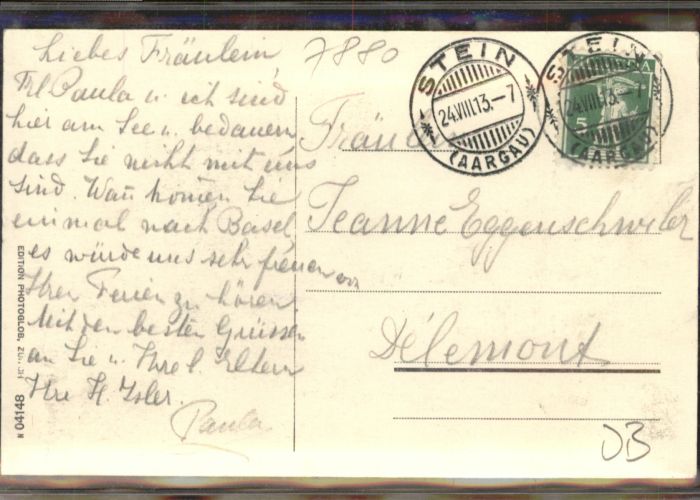 Liebes Fräulein
Frl. Paula u. ich sind
hier am See u. bedauern,
dass Sie nicht mit uns
sind. Wan komen Sie
einmal nach Basel,
es würde uns sehr freuen von
Ihren Ferien zu hören.
Mit den besten Grüssen
an Sie u. Ihre l. Eltern
Ihre H. Isler.
Paula
7880
STEIN
24.VIII.13.–7
(AARGAU)
STEIN
24.VIII.13.–7
(AARGAU)
5
Fräulein
Jeanne Eggenschwiler
Délemont
EDITION PHOTOGLOB,
N 04148